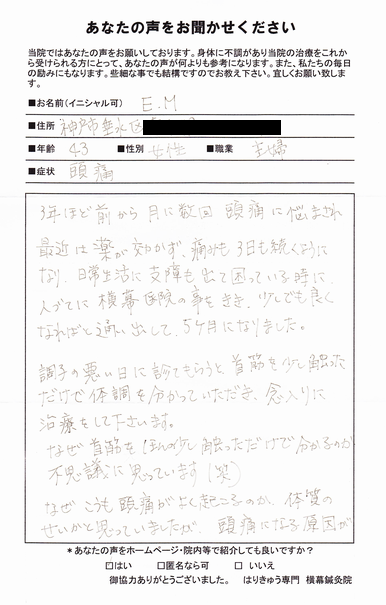 あなたの声をお聞かせください
当院ではあなたの声をお願いしております。身体に不調があり当院の治療をこれか
ら受けられる方にとって、あなたの声が何よりも参考になります。また、私たちの毎日
の励みにもなります。些細な事でも結構ですのでお教え下さい。宜しくお願い致しま
す。
■お名前(イニシャル可) E.M
■住所 神戸市垂水区
■年齢 43 ■性別 女性 ■職業 主婦
■症状 頭痛
3年ほど前から月に数回 頭痛に悩まされ
最近は薬が効かず、痛みも3日も続くように
なり、日常生活に支障も出て困っている時に、
人づてに横幕医院の事をきき、少しでも良く
なればと通い出して、5ヶ月になりました。
調子の悪い日に診てもらうと首筋を少し触った
だけで体調を分かっていただき、念入りに
治療をして下さいます。
なぜ首筋をほんの少し触っただけで分かるのか
不思議に思っています(笑)
なぜこうも頭痛がよく起こるのか、体質の
せいかと思っていましたが、頭痛になる原因が
*あなたの声をホームページ・院内等で紹介しても良いですか?
□はい □匿名なら可 □いいえ
御協力ありがとうございました。 はりきゅう専門 横幕鍼灸院